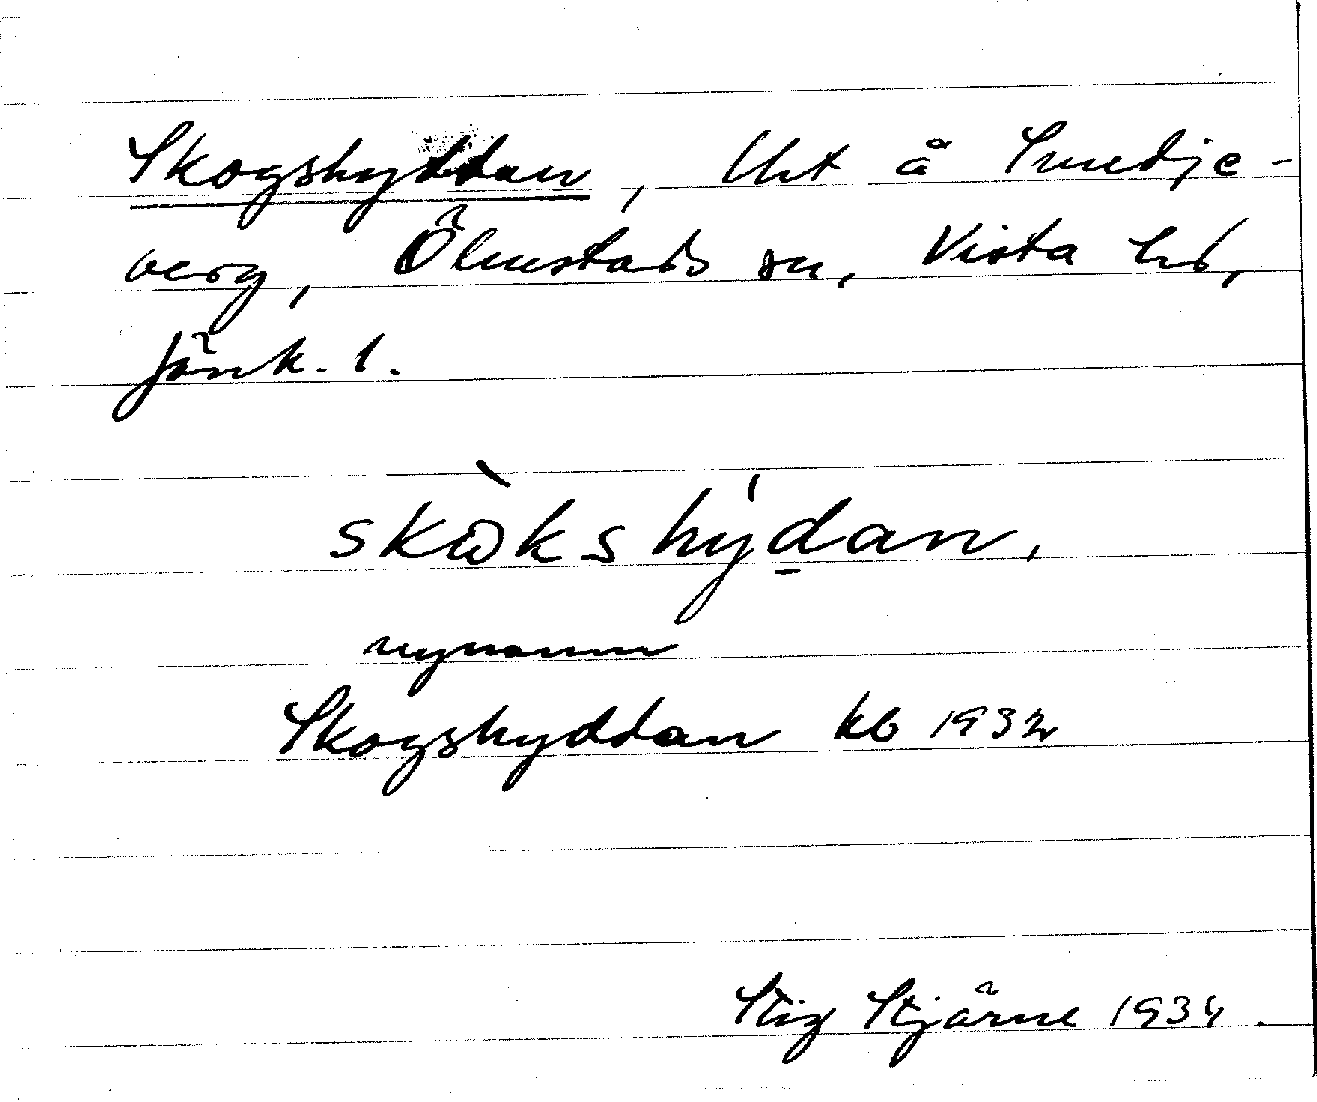 Skogshyddan, Uht å Smedje-
berg, Ölmstads sn, Vista hd,
Jönk. l.
skòkshýdan,
nynamn
Skogshyddan kb 1932
Stig Stjärne 1934.